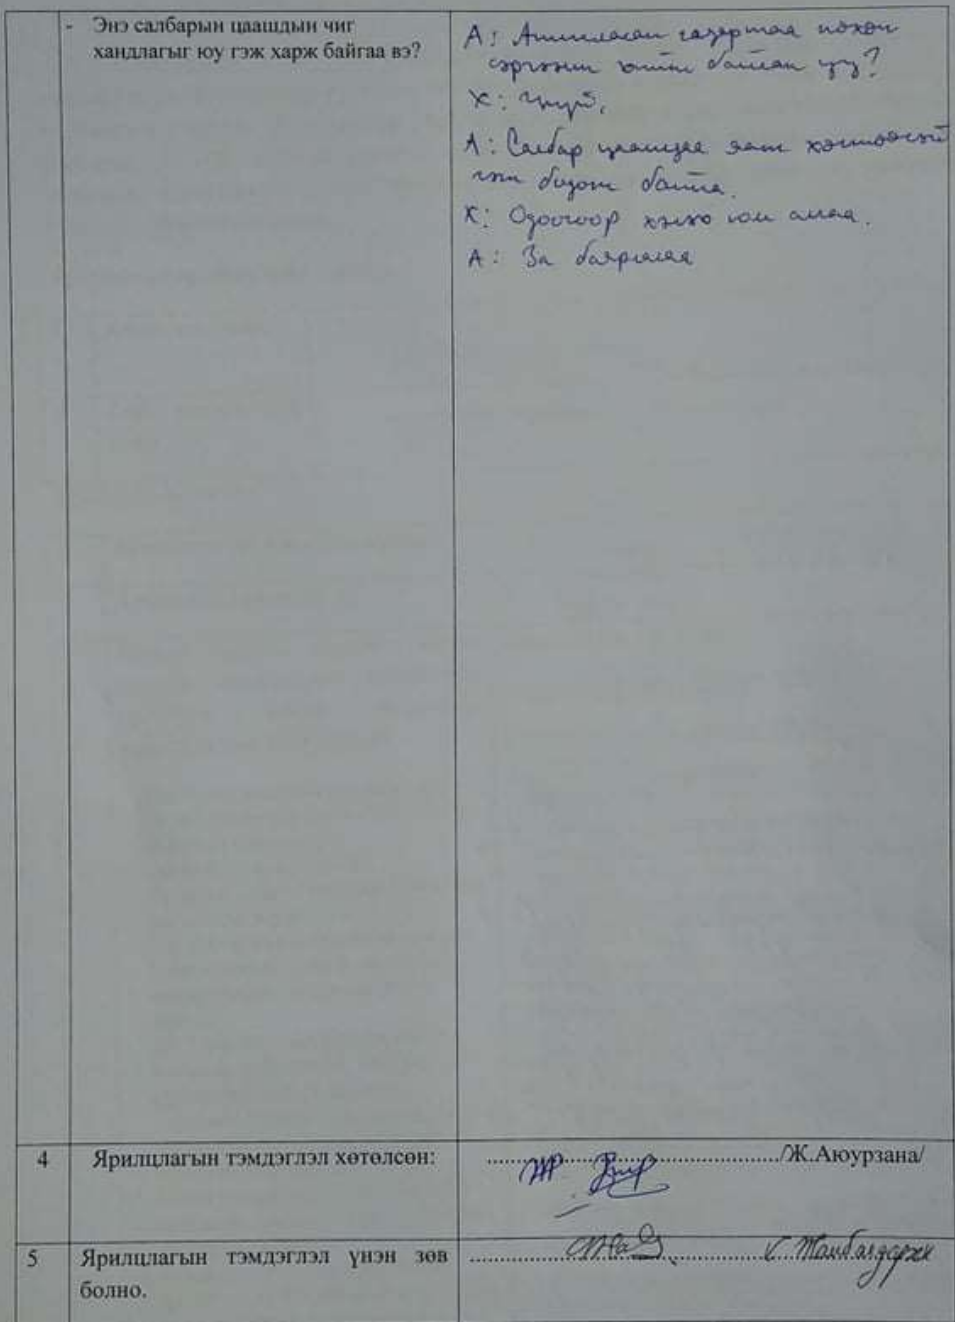 - Энэ салбарын цаашдын чиг
хандлагыг юу гэж харж байгаа вэ?
А: Ашигласан газартаа нөхөн
сэргээлт хийж байсан уу?
Х: Үгүй.
А: Салбар цаашдаа яаж хөгжөөсэй
гэж бодож байна.
Х: Одоогоор хэлэх юм алаа.
А: За баярлалаа
4 Ярилцлагын тэмдэглэл хөтөлсөн: ...../Ж.Аюурзана/
5 Ярилцлагын тэмдэглэл үнэн зөв
болно.